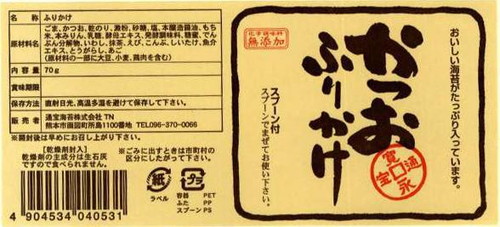 名　称 ふりかけ
原材料名 ごま、かつお、乾のり、澱粉、砂糖、塩、本醸造醤油、もち
米、本みりん、乳糖、酵母エキス、発酵調味料、糖蜜、でん
ぷん分解物、いわし、抹茶、えび、こんぶ、しいたけ、魚介
エキス、とうがらし、あご
（原材料の一部に大豆、小麦、鶏肉を含む）
内容量 70g
賞味期限
保存方法 直射日光、高温多湿を避けて保存して下さい。
販売者 通宝海苔株式会社 TN
熊本市画図町所島1100番地 TEL096-370-0066
※開封後は早めにお召し上がり下さい。
【乾燥剤封入】
乾燥剤の主成分は生石灰
ですので食べられません。
※ごみに出すときは市町村の
区分にしたがって下さい。
4 904534 040531
紙
ラベル
プラ
容器 PET
ふた PP
スプーン PS
化学調味料
無添加
おいしい海苔がたっぷり入っています。
かつお
ふりかけ
スプーン付
スプーンでまぜてお使い下さい。